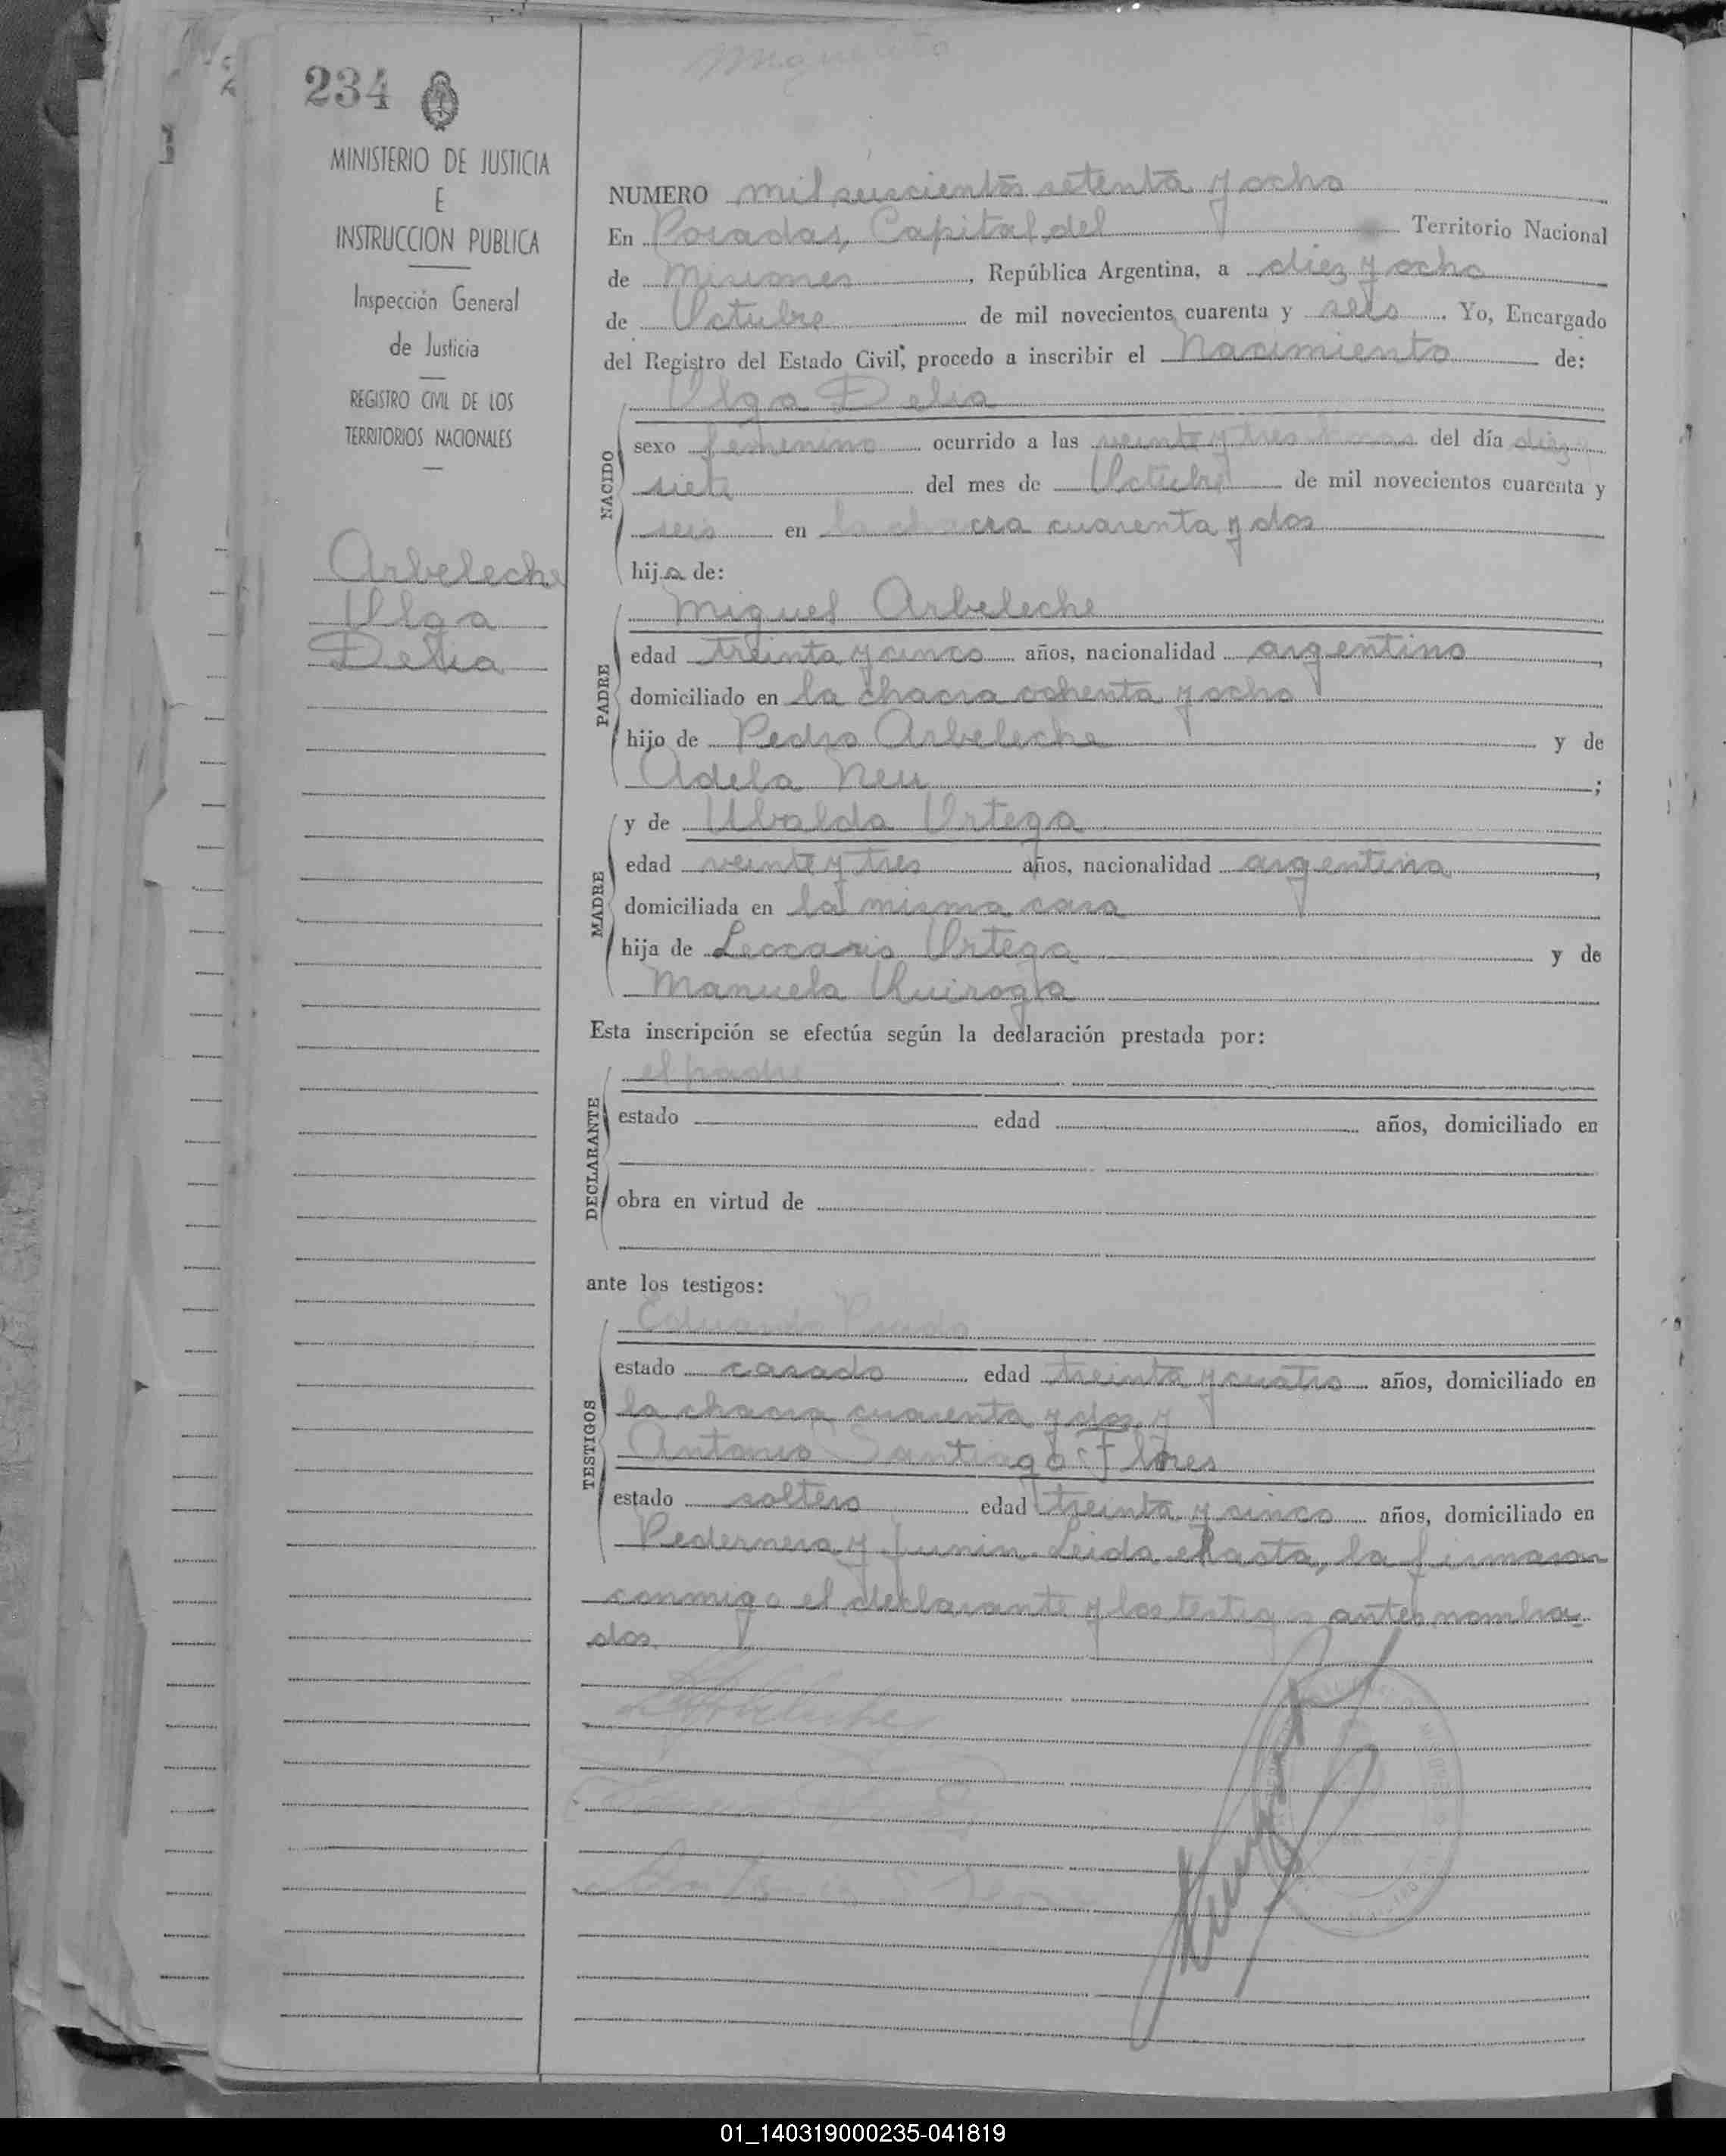 234
MINISTERIO DE JUSTICIA
E
INSTRUCCION PUBLICA
Inspección General
de Justicia
REGISTRO CIVIL DE LOS
TERRITORIOS NACIONALES
Arbeleche
Olga
Delia
NUMERO mil seiscientos setenta y ocho
En Posadas, Capital del Territorio Nacional
de Misiones, República Argentina, a diez y ocho
de Octubre de mil novecientos cuarenta y seis. Yo, Encargado
del Registro del Estado Civil, procedo a inscribir el Nacimiento de:
Olga Delia
NACIDO
sexo femenino ocurrido a las veinte y tres horas del día diez y
siete del mes de Octubre de mil novecientos cuarenta y
seis en la chacra cuarenta y dos
hija de:
PADRE
Miguel Arbeleche
edad treinta y cinco años, nacionalidad argentino
domiciliado en la chacra ochenta y ocho
hijo de Pedro Arbeleche y de
Adela Neu;
MADRE
y de Ubalda Ortega
edad veinte y tres años, nacionalidad argentina
domiciliada en la misma casa
hija de Leocario Ortega y de
Manuela Quiroga
Esta inscripción se efectúa según la declaración prestada por:
DECLARANTE
el padre
estado edad años, domiciliado en
obra en virtud de
ante los testigos:
TESTIGOS
Eduardo Prado
estado casado edad treinta y cuatro años, domiciliado en
la chacra cuarenta y dos y
Antonio Santiago Flores
estado soltero edad treinta y cinco años, domiciliado en
Pedernera y Junin. Leida el acta, la firmaron
conmigo el declarante y los testigos antes nombra-
dos.
01_140319000235-041819